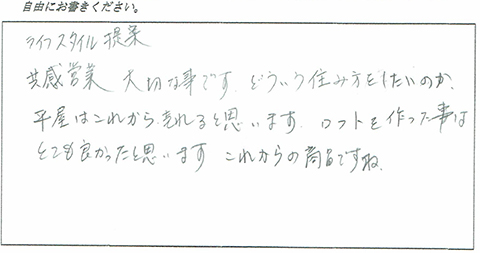 自由にお書きください。
ライフスタイル提案
共感営業 大切な事です. どういう住み方をしたいのか.
平屋はこれから売れると思います. ロフトを作った事は
とても良かったと思います これからの商品ですね.